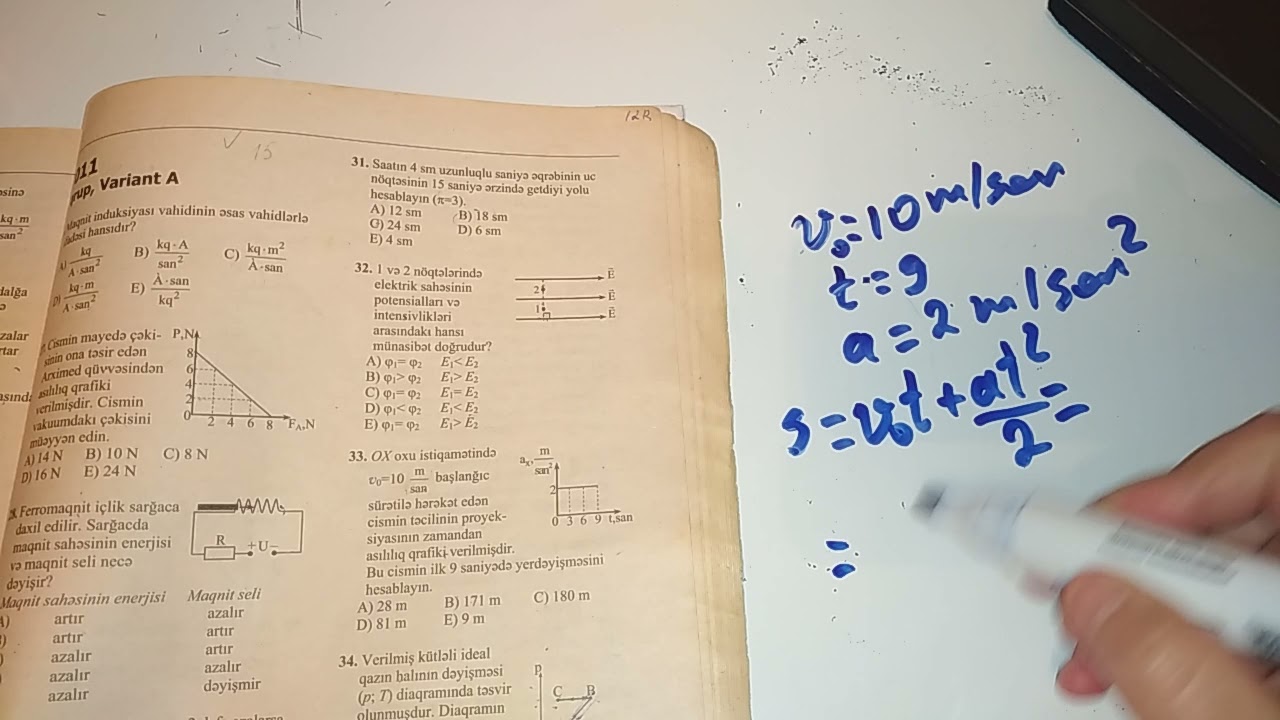 12R
15
011
rup, Variant A
Maqnit induksiyası vahidinin əsas vahidlərlə
ifadəsi hansıdır?
A) kq/A·san² B) kq·A/san² C) kq·m²/A·san
D) kq·m/A·san² E) A·san/kq²
Cismin mayedə çəki-
sinin ona təsir edən
Arximed qüvvəsindən
asılılıq qrafiki
verilmişdir. Cismin
vakuumdakı çəkisini
müəyyən edin.
A) 14 N B) 10 N C) 8 N
D) 16 N E) 24 N
P,N
8
6
4
2
0 2 4 6 8 F_A,N
Ferromaqnit içlik sarğaca
daxil edilir. Sarğacda
maqnit sahəsinin enerjisi
və maqnit seli necə
dəyişir?
R +U−
Maqnit sahəsinin enerjisi Maqnit seli
artır azalır
artır artır
azalır artır
azalır azalır
azalır dəyişmir
31. Saatın 4 sm uzunluqlu saniyə əqrəbinin uc
nöqtəsinin 15 saniyə ərzində getdiyi yolu
hesablayın (π=3).
A) 12 sm B) 18 sm
C) 24 sm D) 6 sm
E) 4 sm
32. 1 və 2 nöqtələrində
elektrik sahəsinin
potensialları və
intensivlikləri
arasındakı hansı
münasibət doğrudur?
A) φ₁= φ₂ E₁< E₂
B) φ₁> φ₂ E₁> E₂
C) φ₁= φ₂ E₁= E₂
D) φ₁< φ₂ E₁< E₂
E) φ₁= φ₂ E₁> E₂
E
2 E
1 E
33. OX oxu istiqamətində
υ₀=10 m/san başlanğıc
sürətilə hərəkət edən
cismin təcilinin proyek-
siyasının zamandan
asılılıq qrafiki verilmişdir.
Bu cismin ilk 9 saniyədə yerdəyişməsini
hesablayın.
A) 28 m B) 171 m C) 180 m
D) 81 m E) 9 m
aₓ, m/san²
2
0 3 6 9 t,san
34. Verilmiş kütləli ideal
qazın halının dəyişməsi
(p; T) diaqramında təsvir
olunmuşdur. Diaqramın
p
C B
υ₀=10 m/san
t=9
a=2 m/san²
s=υ₀t+at²/2=
=